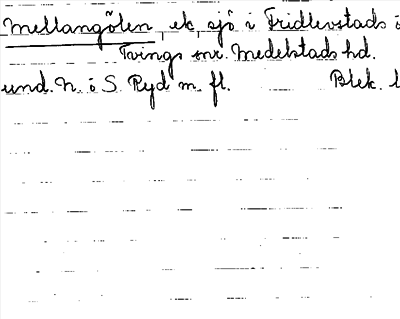 Mellangölen, ek, sjö i Fridlevstads o
Tvings snr. Medelstads hd.
und. N. o S. Ryd m. fl. Blek. l